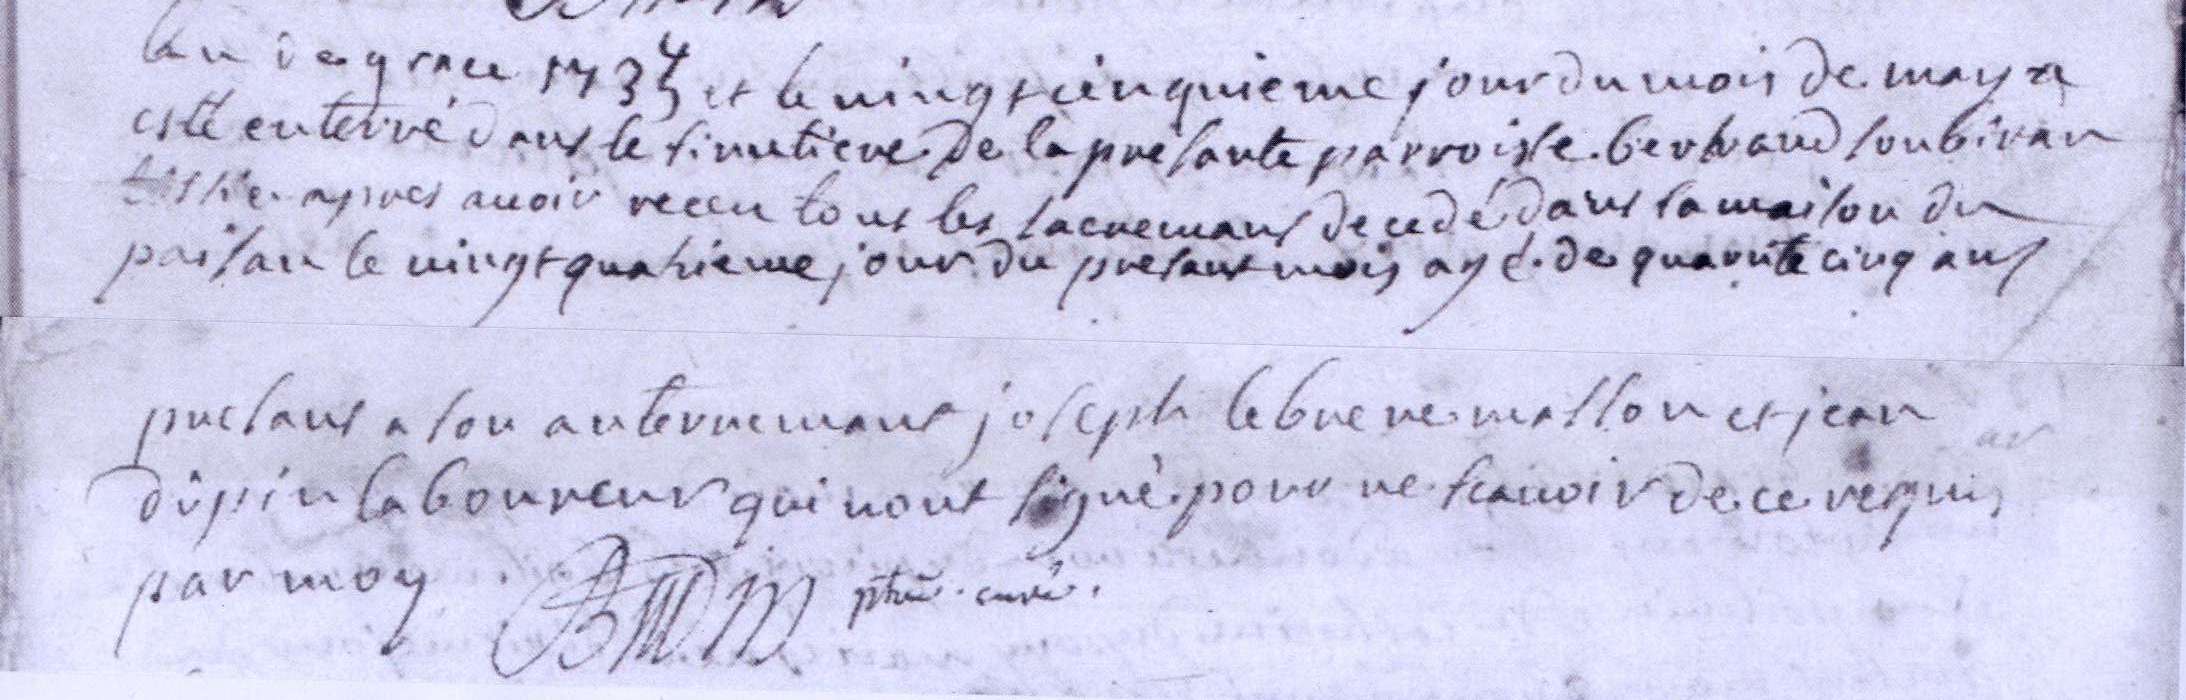 lan de grace 1734 et le vingt cinquieme jour du mois de may a
esté enterré dans le simetiere de la presante parroisse bertrand soubiran
tissie apres auoir receu tous les sacremans decedé dans la maison du
paisan le vingt quatrieme jour du presant mois agé de quarente cinq ans
presans a son anterremant joseph lebrere masson et jean
dupin laboureur qui nont signé pour ne scauoir de ce requis
par moy ptre curé